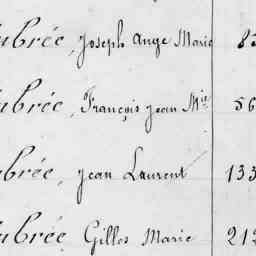 ubrée, Joseph Ange Marie 8
ubrée, François Jean Mie 56
ubrée, Jean Laurent 133
ubrée, Gilles Marie 212